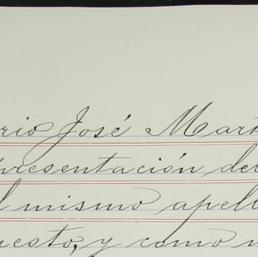 rio José Mar
presentación del
l mismo apell
uesto, y como